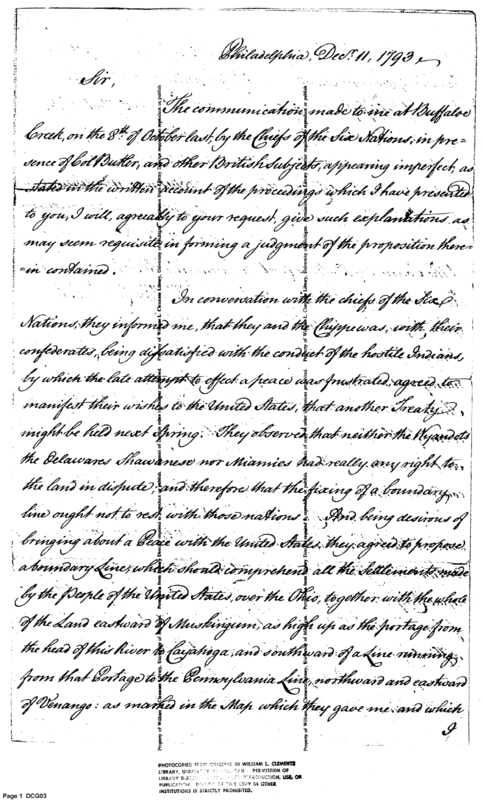 Philadelphia, Decr. 11, 1793.
Sir,
The communication made to me at Buffaloe
Creek, on the 8th of October last, by the Chiefs of the Six Nations, in pre=
sence of Col Butler, and other British subjects, appearing imperfect, as
stated in the written account of the proceedings which I have presented
to you, I will, agreeably to your request, give such explanations, as
may seem requisite in forming a judgment of the proposition there=
=in contained.
In conversation with the chiefs of the Six
Nations, they informed me, that they and the Chippewas, with their
confederates, being dissatisfied with the conduct of the hostile Indians,
by which the late attempt to effect a peace was frustrated, agreed to
manifest their wishes to the United States, that another Treaty
might be held next Spring. They observed that neither the Wyandots
the Delawares Shawanese nor Miamies had really any right to
the land in dispute, and therefore that the fixing of a boundary
line ought not to rest with those nations. And being desirous of
bringing about a Peace with the United States, they agreed to propose
a boundary Line, which should comprehend all the Settlements made
by the People of the United States, over the Ohio, together with the whole
of the Land eastward of Muskingum, as high up as the portage from
the head of this River to Cayahoga, and southward of a Line running
from that Portage to the Pennsylvania Line, northward and eastward
of Venango: as marked in the Map which they gave me and which
I
PHOTOCOPIED FROM ORIGINAL IN WILLIAM L. CLEMENTS
LIBRARY, UNIVERSITY OF MICHIGAN. PERMISSION OF
LIBRARY REPRODUCTION, USE, OR
PUBLICATION OF THIS COPY BY OTHER
INSTITUTIONS IS STRICTLY PROHIBITED.
Page 1 DCG03